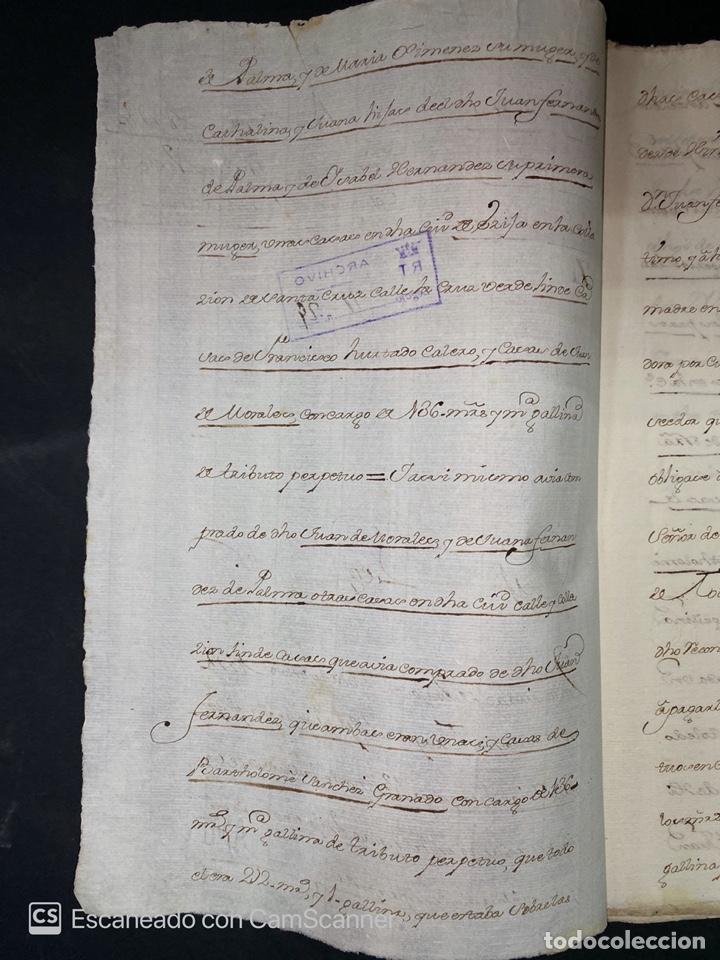 de Palma, y de Maria Ximenez su muger, y de
Cathalina, y Juana hijas del dho Juan fernandez
de Palma, y de Isabel Hernandez su primera
muger, unas casas en dha Ciud de Ezija en la Colla
zion de Santa Cruz Calle la Cruz verde linde Ca
sas de Francisco hurtado Calero, y Casas de Juan
de Morales, con cargo de 136 mrs y ma gallina
de tributo perpetuo = Y assi mismo avia com
prado de dho Juan de Morales, y de Juana fernan
dez de Palma otras casas en dha Ciud calle y Colla
zion linde Casas que avia comprado de dho Juan
fernandez, que ambas eran unas, y Casas de
Bartholomè Sanchez Granado con cargo de 136
mrs y ma gallina de tributo perpetuo, que todo
el era 272 mrs, y 1 gallina, que estaba sobre las
ARCHIVO
CS Escaneado con CamScanner
todocoleccion
dhas Casas
D. Juan fe
timo, y a h
madre en
dora por
seedor qu
obligase
Señor de
dho
a pagar
tuos en
gallina